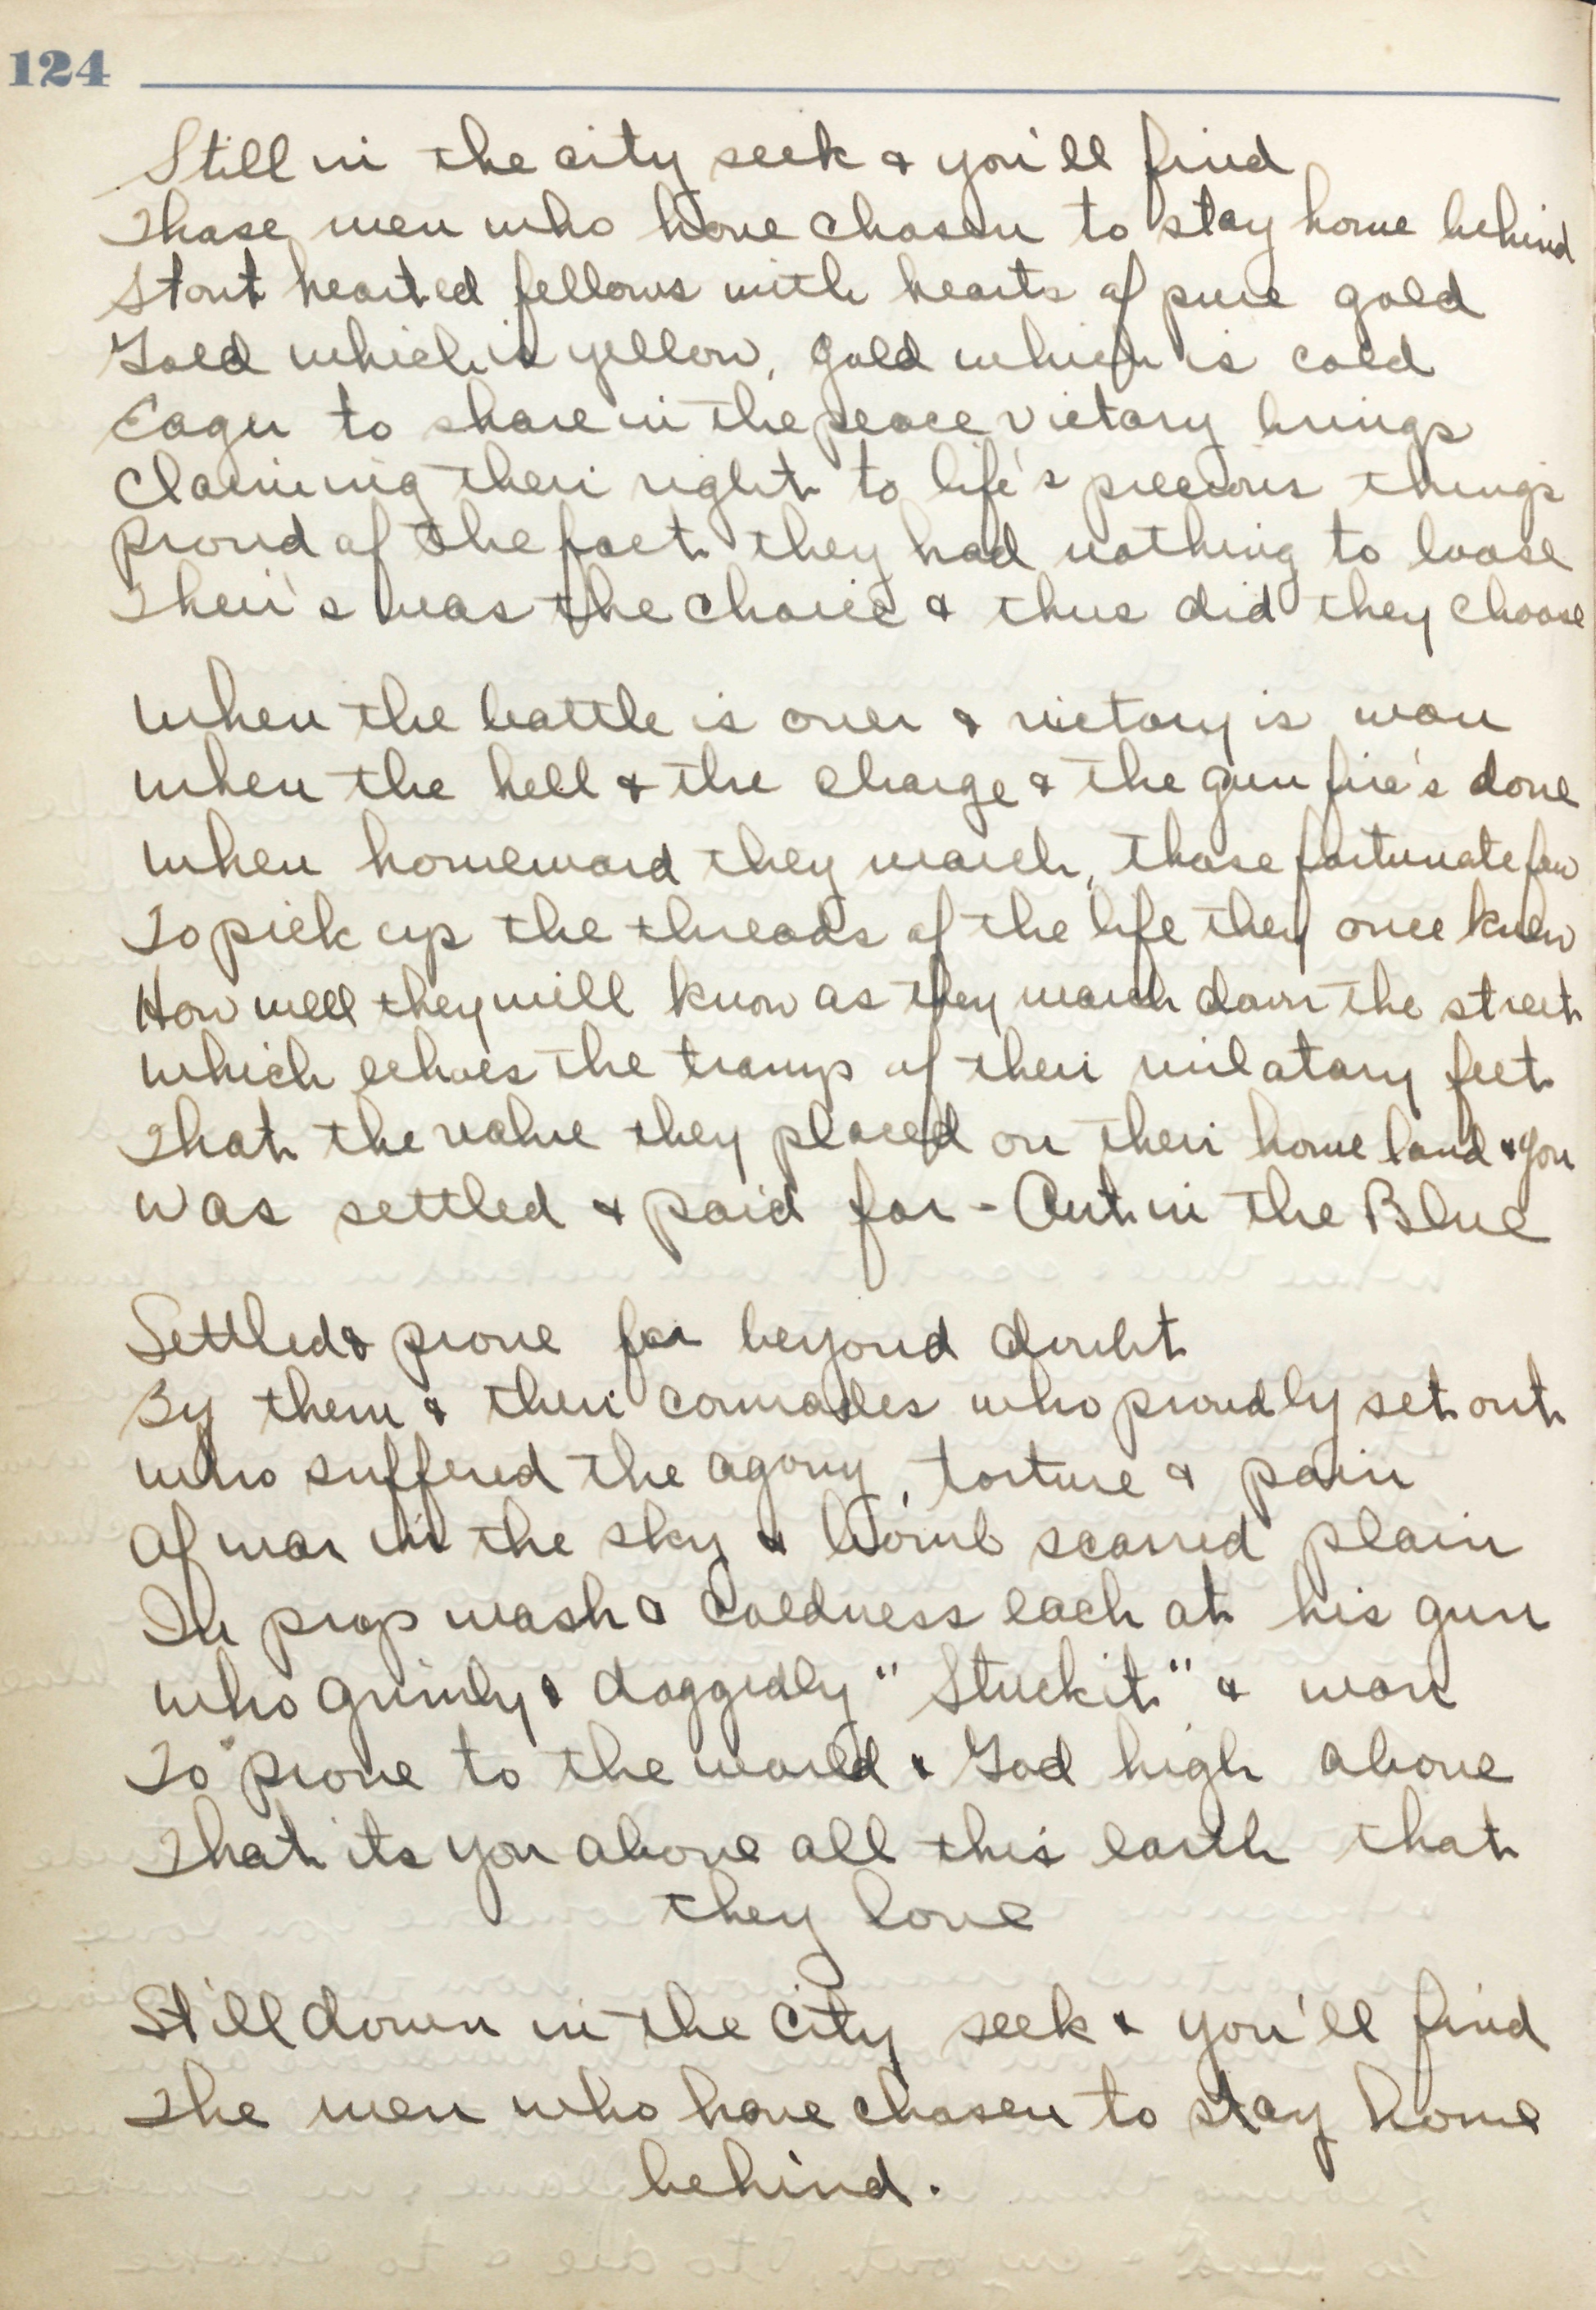 124
Still in the city seek & you'll find
Those men who have chosen to stay home behind
Stout hearted fellows with hearts of pure gold
Gold which is yellow, gold which is cold
Eager to share in the peace victory brings
Claiming their right to life's precious things
Proud of the fact they had nothing to loose
Their's was the choice & thus did they choose
When the battle is over & victory is won
When the hell & the charge & the gun fire's done
When homeward they march, those fortunate few
To pick up the threads of the life they once knew
How well they will know as they march down the street
Which echoes the tramp of their milatary feet
That the value they placed on their home land & you
Was settled & paid for - Out in the Blue
Settled & prove far beyond doubt
By them & their comrades who proudly set out
Who suffered the agony, torture & pain
Of war in the sky & bomb scarred plain
In prop wash & coldness each at his gun
Who grimly & doggedly "Stuck it" & won
To prove to the world & God high above
That its you above all this earth that
they love
Still down in the city seek & you'll find
The men who have chosen to stay home
behind.